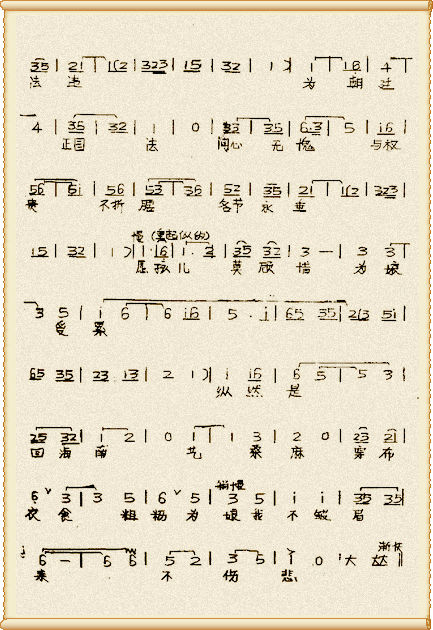 35 | 21 | 1(2 | 323 | 15 | 32 | 1 ) | 1 | 16 | 4
法 违 为 朝 廷
4 | 35 | 32 | 1 | 0 | 33 | 35 | 6·3 | 5 | i6 |
正国 法 问心 无愧 与权
56 | 5i | 56 | 53 | 36 | 52 | 35 | 21 | 1(2 | 323 |
贵 不折 腰 名节 永 垂
慢
15 | 32 | 1 ) | ·16 | 1· 2 | 35 32 | 3 — | 3 3 |
愿孩儿 莫 惜 为 娘
3 5 | i 6 | 6 i6 | 5· i | 65 35 | 2(3 5i |
受 累
65 35 | 23 13 | 2 1 ) | 1 16 | 6 5 | 5 3 |
纵 然 是
25 32 | 1 2 | 0 1 | 1 3 | 2 0 | 23 21 |
回 海 南 艺 桑 麻 穿 布
稍慢
6 ˅ 3 | 3 5 | 6 ˅ 5 | 3 5 | i i | 35 35 |
衣 食 粗 粝 为 娘 我 不 皱 眉
渐快
6 — | 6 6 | 5 2 | 3 5 | i 0 | 大
来 不 伤 悲